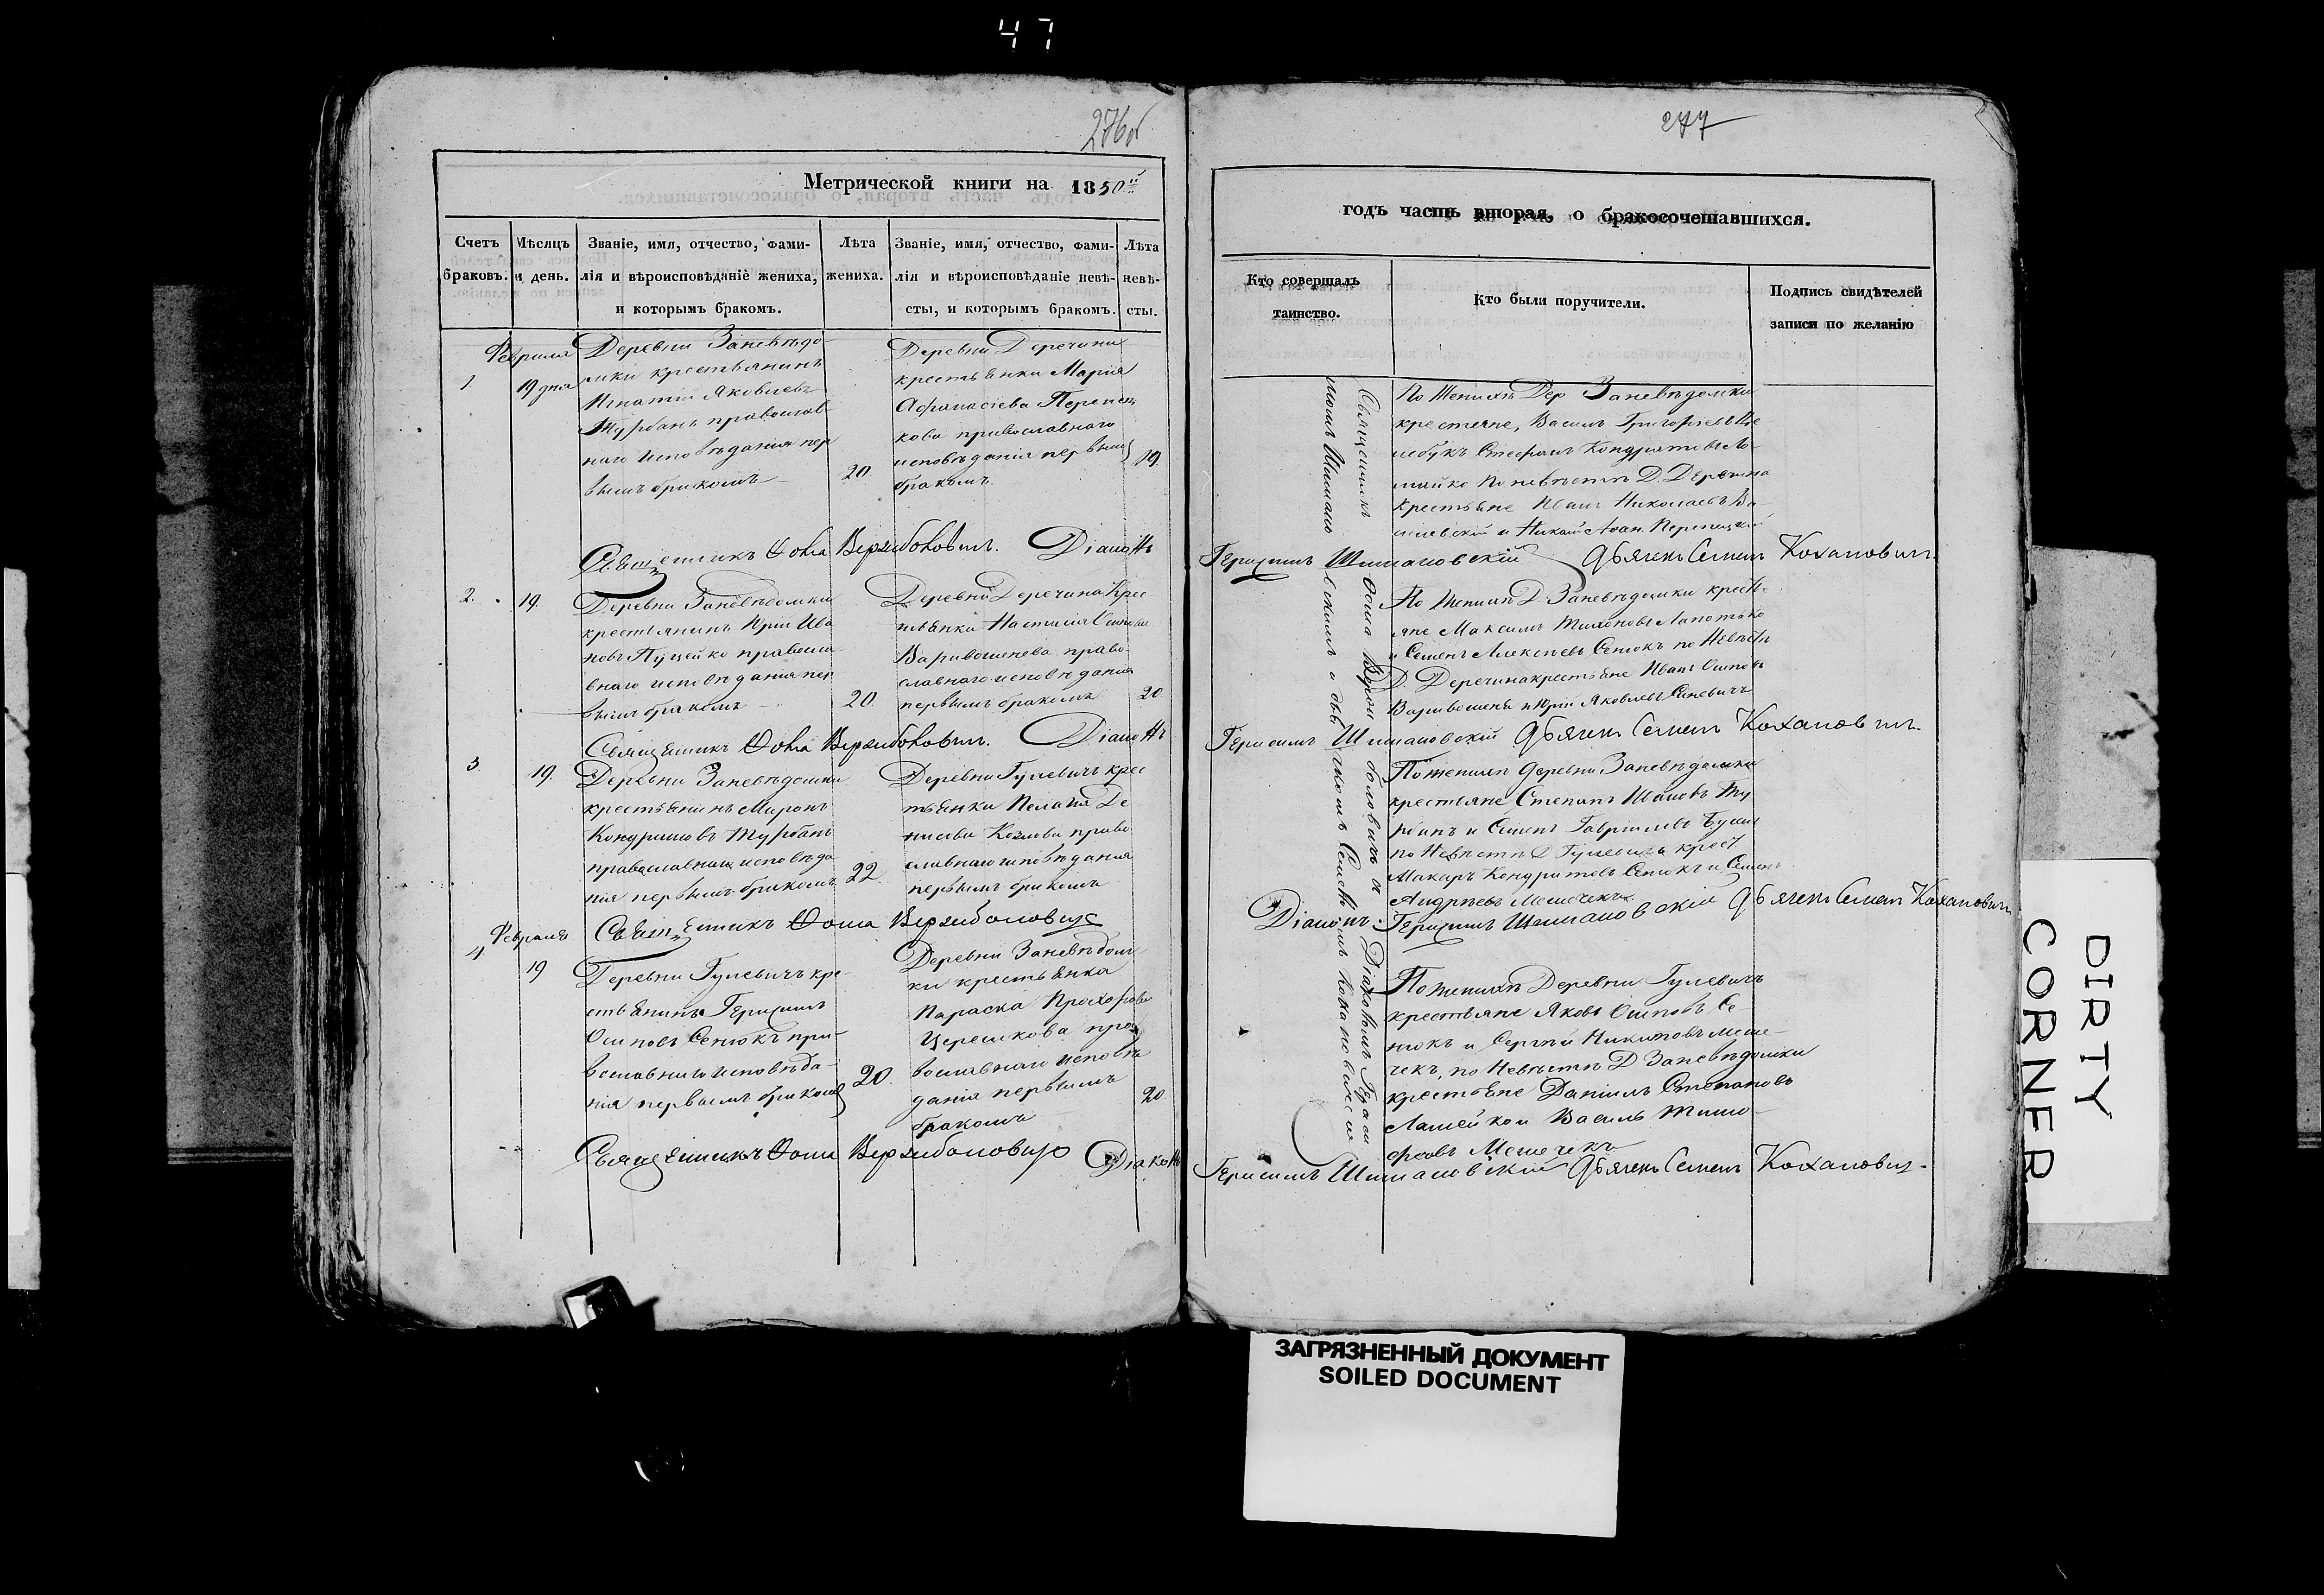 47
276об
Метрической книги на 1850й
Счетъ браковъ.
Мѣсяцъ и день.
Званіе, имя, отчество, фами-
лія и вѣроисповѣданіе жениха,
и которымъ бракомъ.
Лѣта
жениха.
Званіе, имя, отчество, фами-
лія и вѣроисповѣданіе невѣ-
сты, и которымъ бракомъ.
Лѣта
невѣ-
сты.
1
Февраля
19 дня
Деревни Заневѣдо-
мки крестьянинъ
Игнатій Яковлевъ
Турбанъ православ-
наго исповѣданія пер
вымъ бракомъ
20
Деревни Деречина
крестьянка Марія
Афанасіева
кова православнаго
исповѣданія первым
бракомъ.
19
Священникъ Ѳома Вержболовичъ. Діаконъ
2.
19.
Деревни Заневѣдомки
крестьянинъ Юрій Ива
новъ Пуцейко правосла
внаго исповѣданія пер
вымъ бракомъ
20
Деревни Деречина крес
тьянка Настасія
Варивошенева право-
славнаго исповѣданія
первымъ бракомъ
20
Священникъ Ѳома Вержболовичъ. Діаконъ
3.
19.
Деревни Заневѣдомки
крестьянинъ Миронъ
Кондратовъ Турбанъ
православнаго исповѣда
нія первымъ бракомъ
22
Деревни Гулевичъ крес
тьянка Пелагія Де
нисова Козлова право
славнаго исповѣданія
первымъ бракомъ
Священникъ Ѳома Вержболовичъ
4
Февраля
19
Деревни Гулевичъ кре-
стьянинъ Герасимъ
Осиповъ Сенюкъ пра-
вославнаго исповѣда-
нія первымъ бракомъ
20.
Деревни Заневѣдом
ки крестьянка
Параска Прохорова
Церешкова пра
вославнаго исповѣ
данія первымъ
бракомъ
20
Священникъ Ѳома Вержболовичъ Діаконъ
277
годъ часть вторая, о бракосочетавшихся.
Кто совершалъ
таинство.
Кто были поручители.
Подпись свидѣтелей
записи по желанію
Священникъ Ѳома Вержболовичъ съ Діакономъ Гераси
момъ Шимановскимъ и дьячкомъ Семеномъ Кохановичемъ
По Женихѣ Дер Заневѣдомки
крестяне, Василь Григоріевъ
Стефанъ Кондратовъ Ло
мейко По невѣстѣ Д. Деречина
крестьяне Иванъ Николаевъ Ва-
Герасимъ Шимановскій Дьячекъ Семенъ Кохановичъ.
По Женихѣ Д. Заневѣдомки кресть-
яне Максимъ Тихоновъ Лапотько
и Семенъ Алексѣевъ Сенюкъ по Невѣстѣ
Д. Деречина крестьяне Иванъ Осиповъ
Варивошеня и Юрій Яковлевъ Синевичъ
Герасимъ Шимановскій Дьячекъ Семенъ Кохановичъ.
По женихѣ деревни Заневѣдомки
крестьяне Степанъ Ивановъ Ту
рбанъ и Семенъ Гавріиловъ
по Невѣстѣ Д Гулевичъ крест
Макаръ Кондратовъ Сенюкъ и Семенъ
Андреевъ Мешечекъ
Діаконъ Герасимъ Шимановскій Дьячекъ Семенъ Кохановичъ
По женихѣ Деревни Гулевичъ
крестьяне Яковъ Осиповъ Се
нюкъ и Сергѣй Никитовъ Меше-
чекъ, по Невѣстѣ Д Заневѣдомки
крестьяне Даніилъ Степановъ
Ламейко и Василь Тимо-
феевъ Мешечекъ
Герасимъ Шимановскій Дьячекъ Семенъ Кохановичъ.
DIRTY
CORNER
ЗАГРЯЗНЕННЫЙ ДОКУМЕНТ
SOILED DOCUMENT